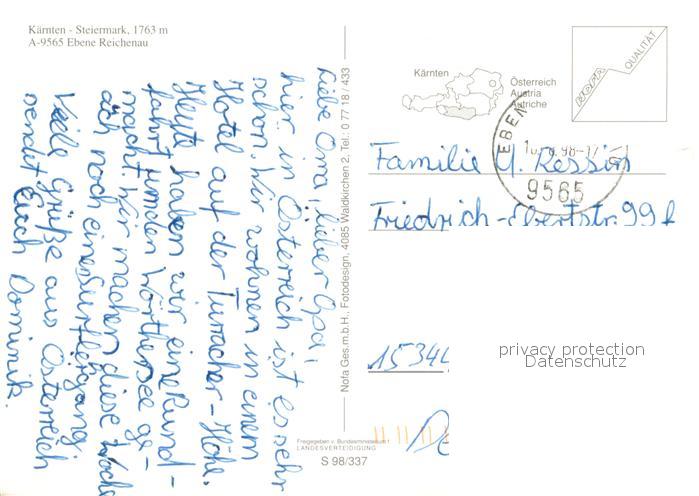 Kärnten - Steiermark, 1763 m
A-9565 Ebene Reichenau
Liebe Oma, lieber Opa,
hier in Österreich ist es sehr
schön. Wir wohnen in einem
Hotel auf der Turracher-Höhe.
Heute haben wir eine Rund-
fahrt um den Wörthersee ge-
macht. Wir machen diese Woche
noch eine
Viele Grüße aus Österreich
sendet Euch Dominik.
Nofa Ges.m.b.H., Fotodesign, 4085 Waldkirchen 2, Tel.: 0 77 18 / 433
Freigegeben v. Bundesministerium f.
LANDESVERTEIDIGUNG
S 98/337
Kärnten
Österreich
Austria
Autriche
QUALITÄT
EBEN
98-17
9565
Familie
Friedrich-Ebertstr. 99
15344
privacy protection
Datenschutz